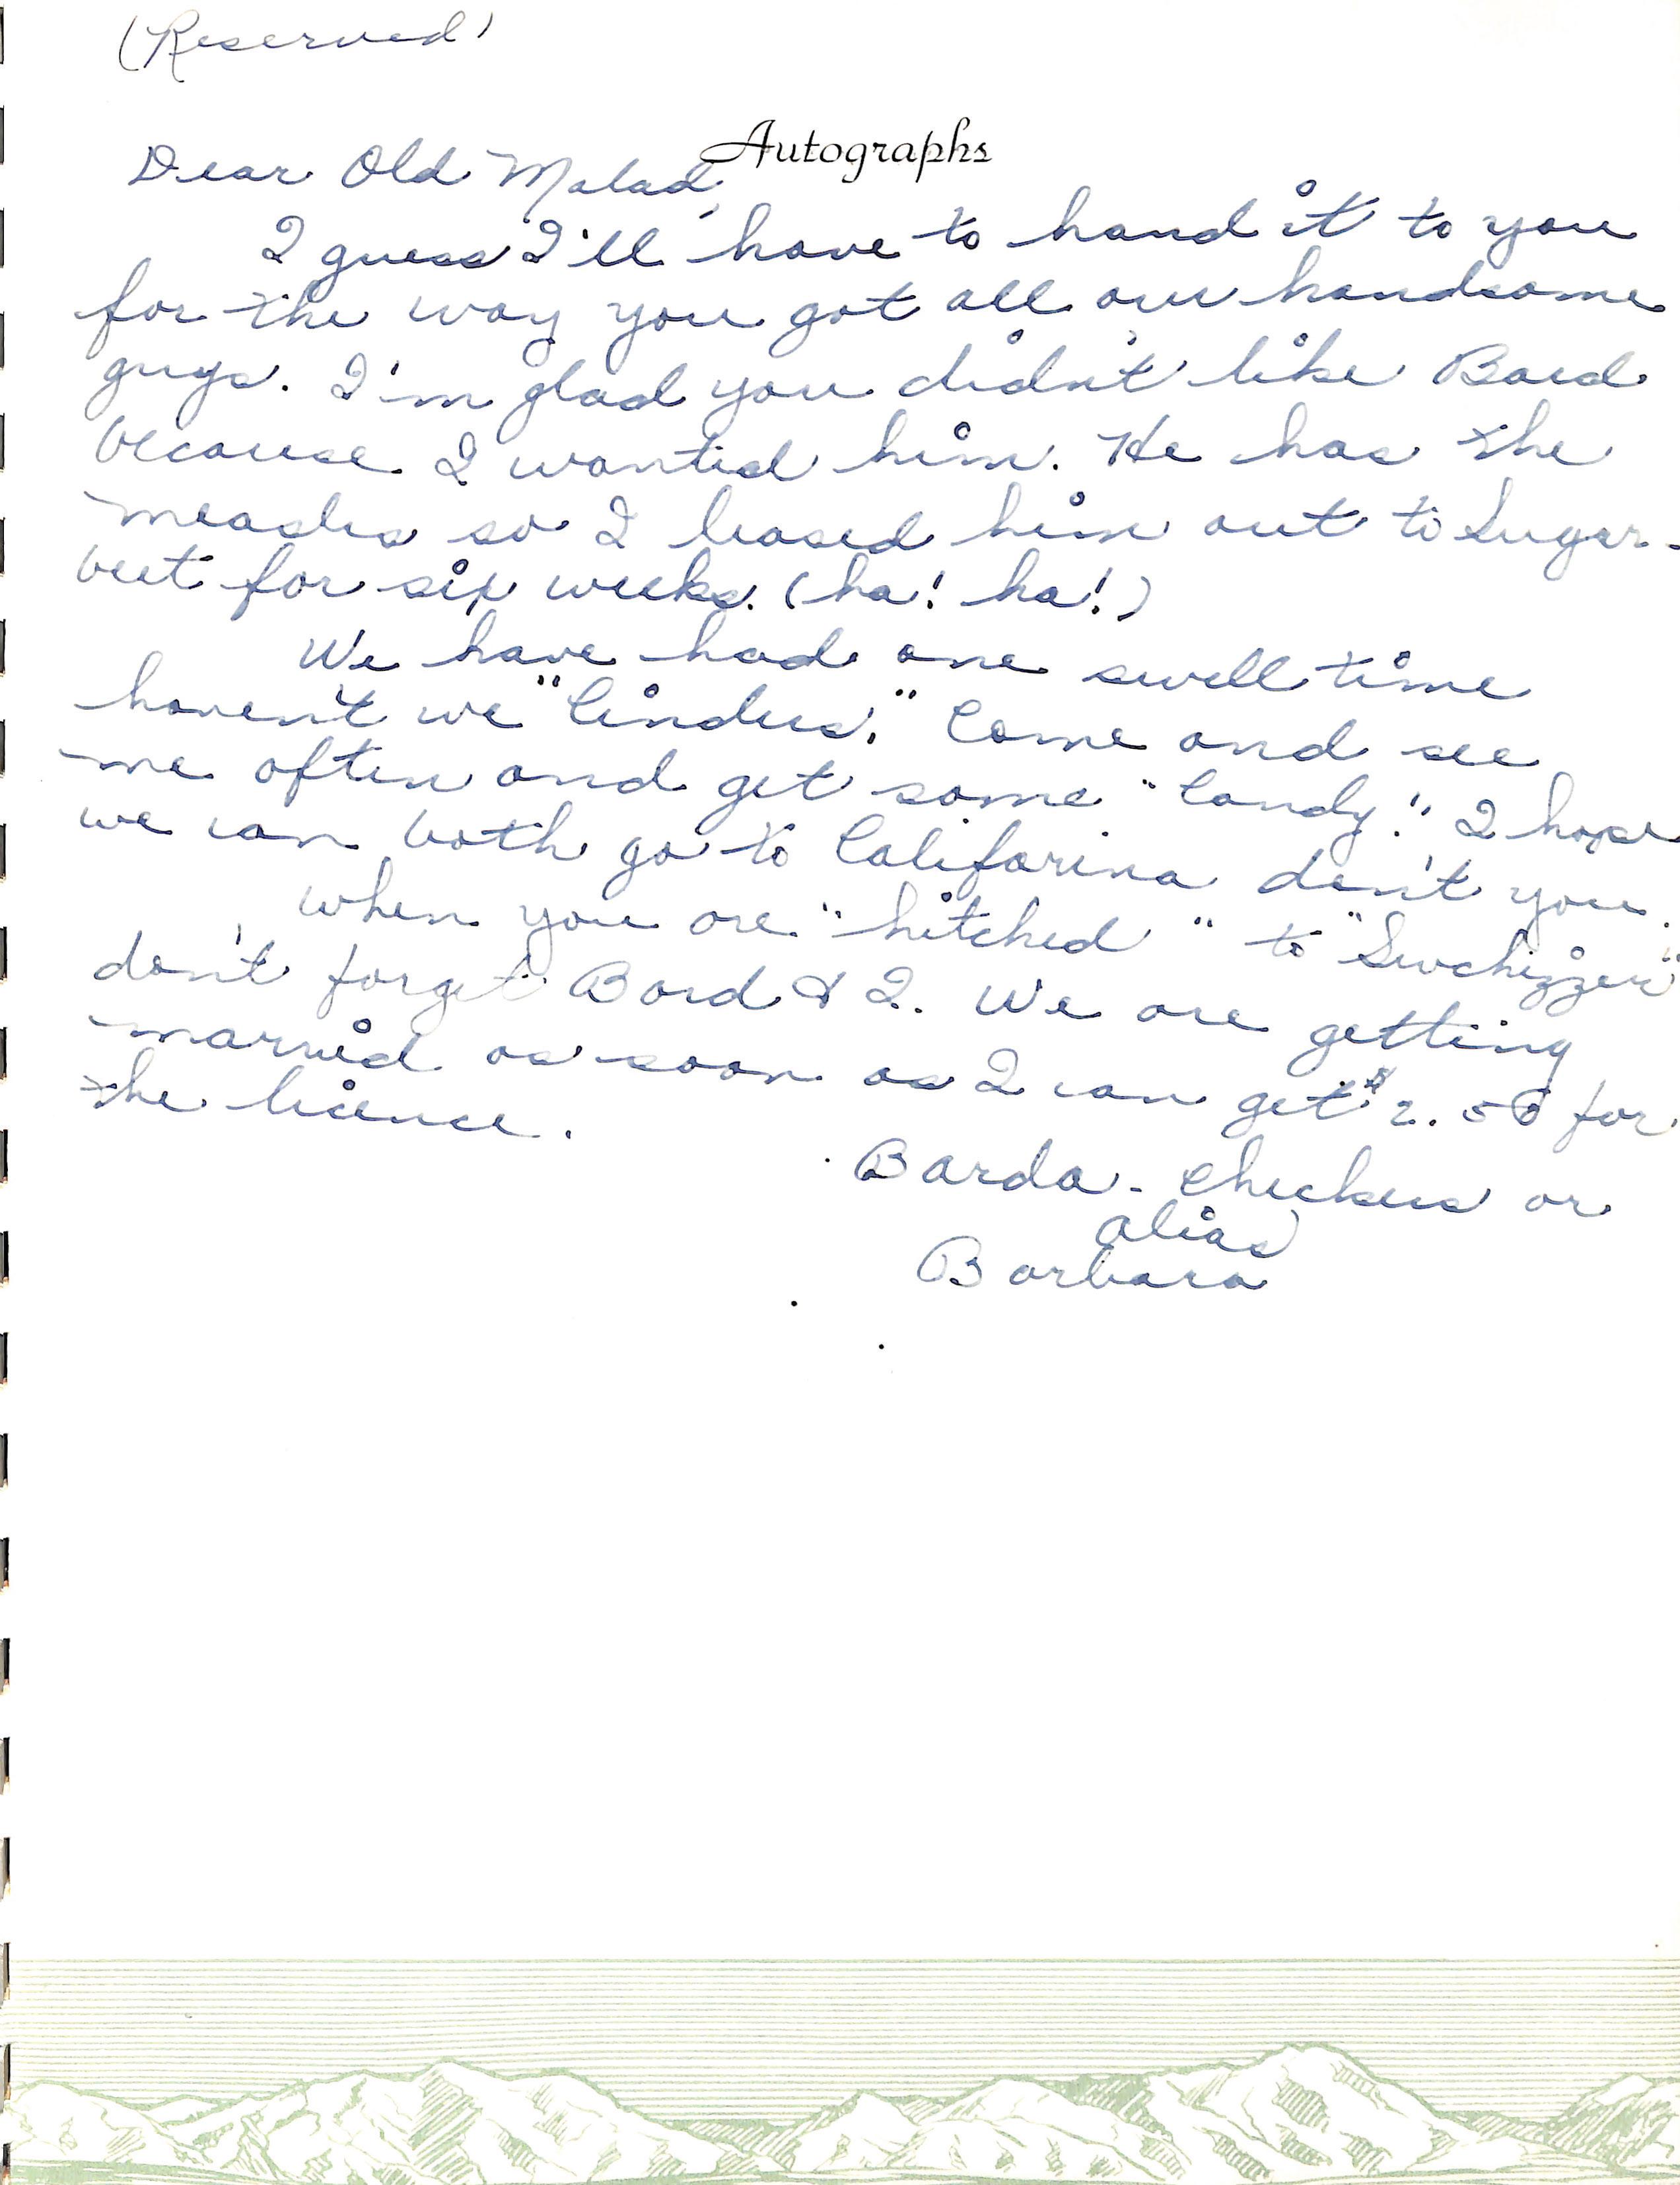 (Reserved)
Autographs
Dear Old Malad,
I guess I'll have to hand it to you
for the way you got all our handsome
guys. I'm glad you didn't like Bard
because I wanted him. He has the
measles so I leased him out to Sugar-
beet for six weeks. (ha! ha!)
We have had one swell time
haven't we "Cinders." Come and see
me often and get some "Candy." I hope
we can both go to Califorina don't you.
When you are "hitched" to "Swchizzer"
don't forget Bard & I. We are getting
married as soon as I can get $2.50 for
the licence.
Barda - Checkers or
alias
Barbara